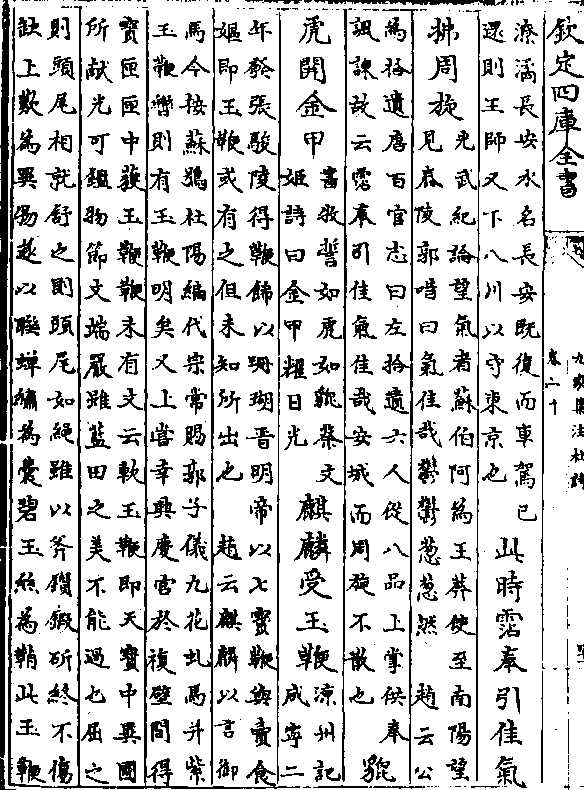 欽定四庫全書
九家集注杜詩
卷二十
潦潏長安水名長安既復而車駕已
還則王師又下八川以守東京也
此時霑奉引佳氣
拂周旋
光武紀論望氣者蘇伯阿為王莽使至南陽望
見舂陵郭唶曰氣佳哉鬱鬱葱葱然 趙云公
為拾遺唐百官志曰左拾遺六人從八品上掌供奉
諷諌故云霑奉引佳氣佳哉安城而周旋不散也
貔
虎開金甲
書牧誓如虎如貔蔡文
姬詩曰金甲耀日光
麒麟受玉鞭
涼州記
咸寧二
年發張駿陵得鞭飾以珊瑚晋明帝以七寳鞭與賣食
嫗即玉鞭或有之但未知所出也 趙云麒麟以言御
馬今按蘇鶚杜陽編代宗常賜郭子儀九花虬馬并紫
玉鞭轡則有玉鞭明矣又上嘗幸興慶宫於複壁間得
寳匣匣中獲玉鞭鞭末有文云軟玉鞭即天寳中異國
所献光可鑑物節文端嚴雖藍田之美不能過也屈之
則頭尾相就舒之則頭尾如繩雖以斧鑕鍜斫終不傷
缺上歎為異物遂以聯蟬繡為囊碧玉絲為鞘此玉鞭